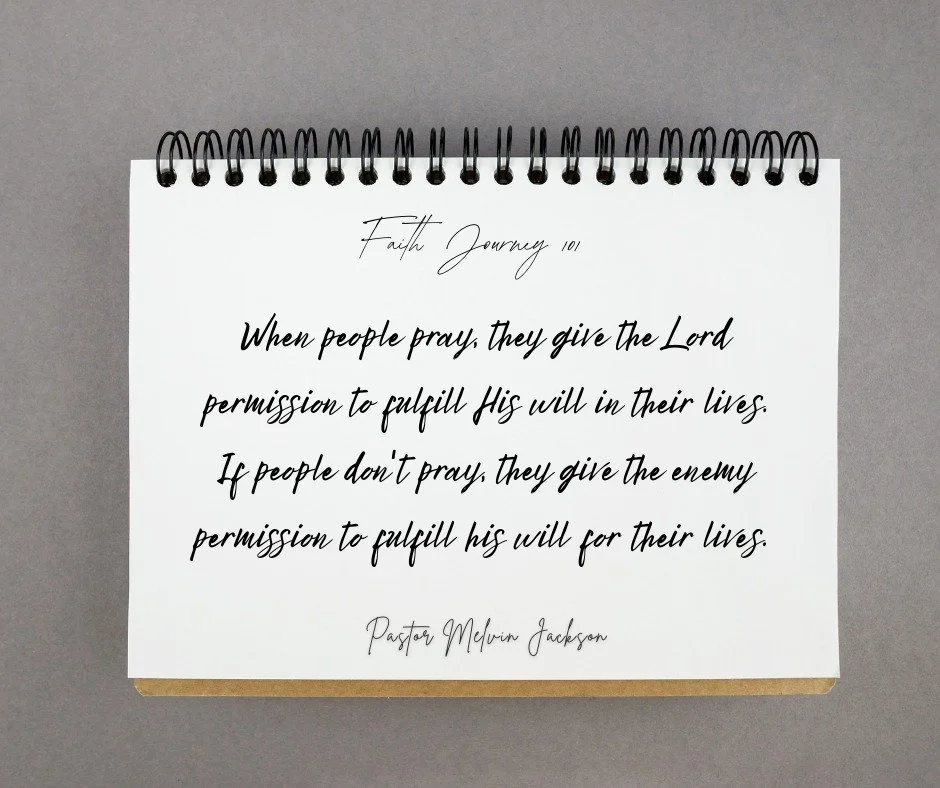 Faith Journey 101
When people pray, they give the Lord
permission to fulfill His will in their lives.
If people don't pray, they give the enemy
permission to fulfill his will for their lives.
Pastor Melvin Jackson